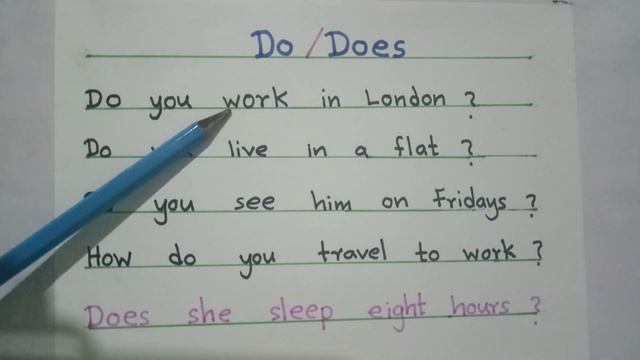 Do / Does
Do you work in London ?
Do live in a flat ?
you see him on Fridays ?
How do you travel to work ?
Does she sleep eight hours ?